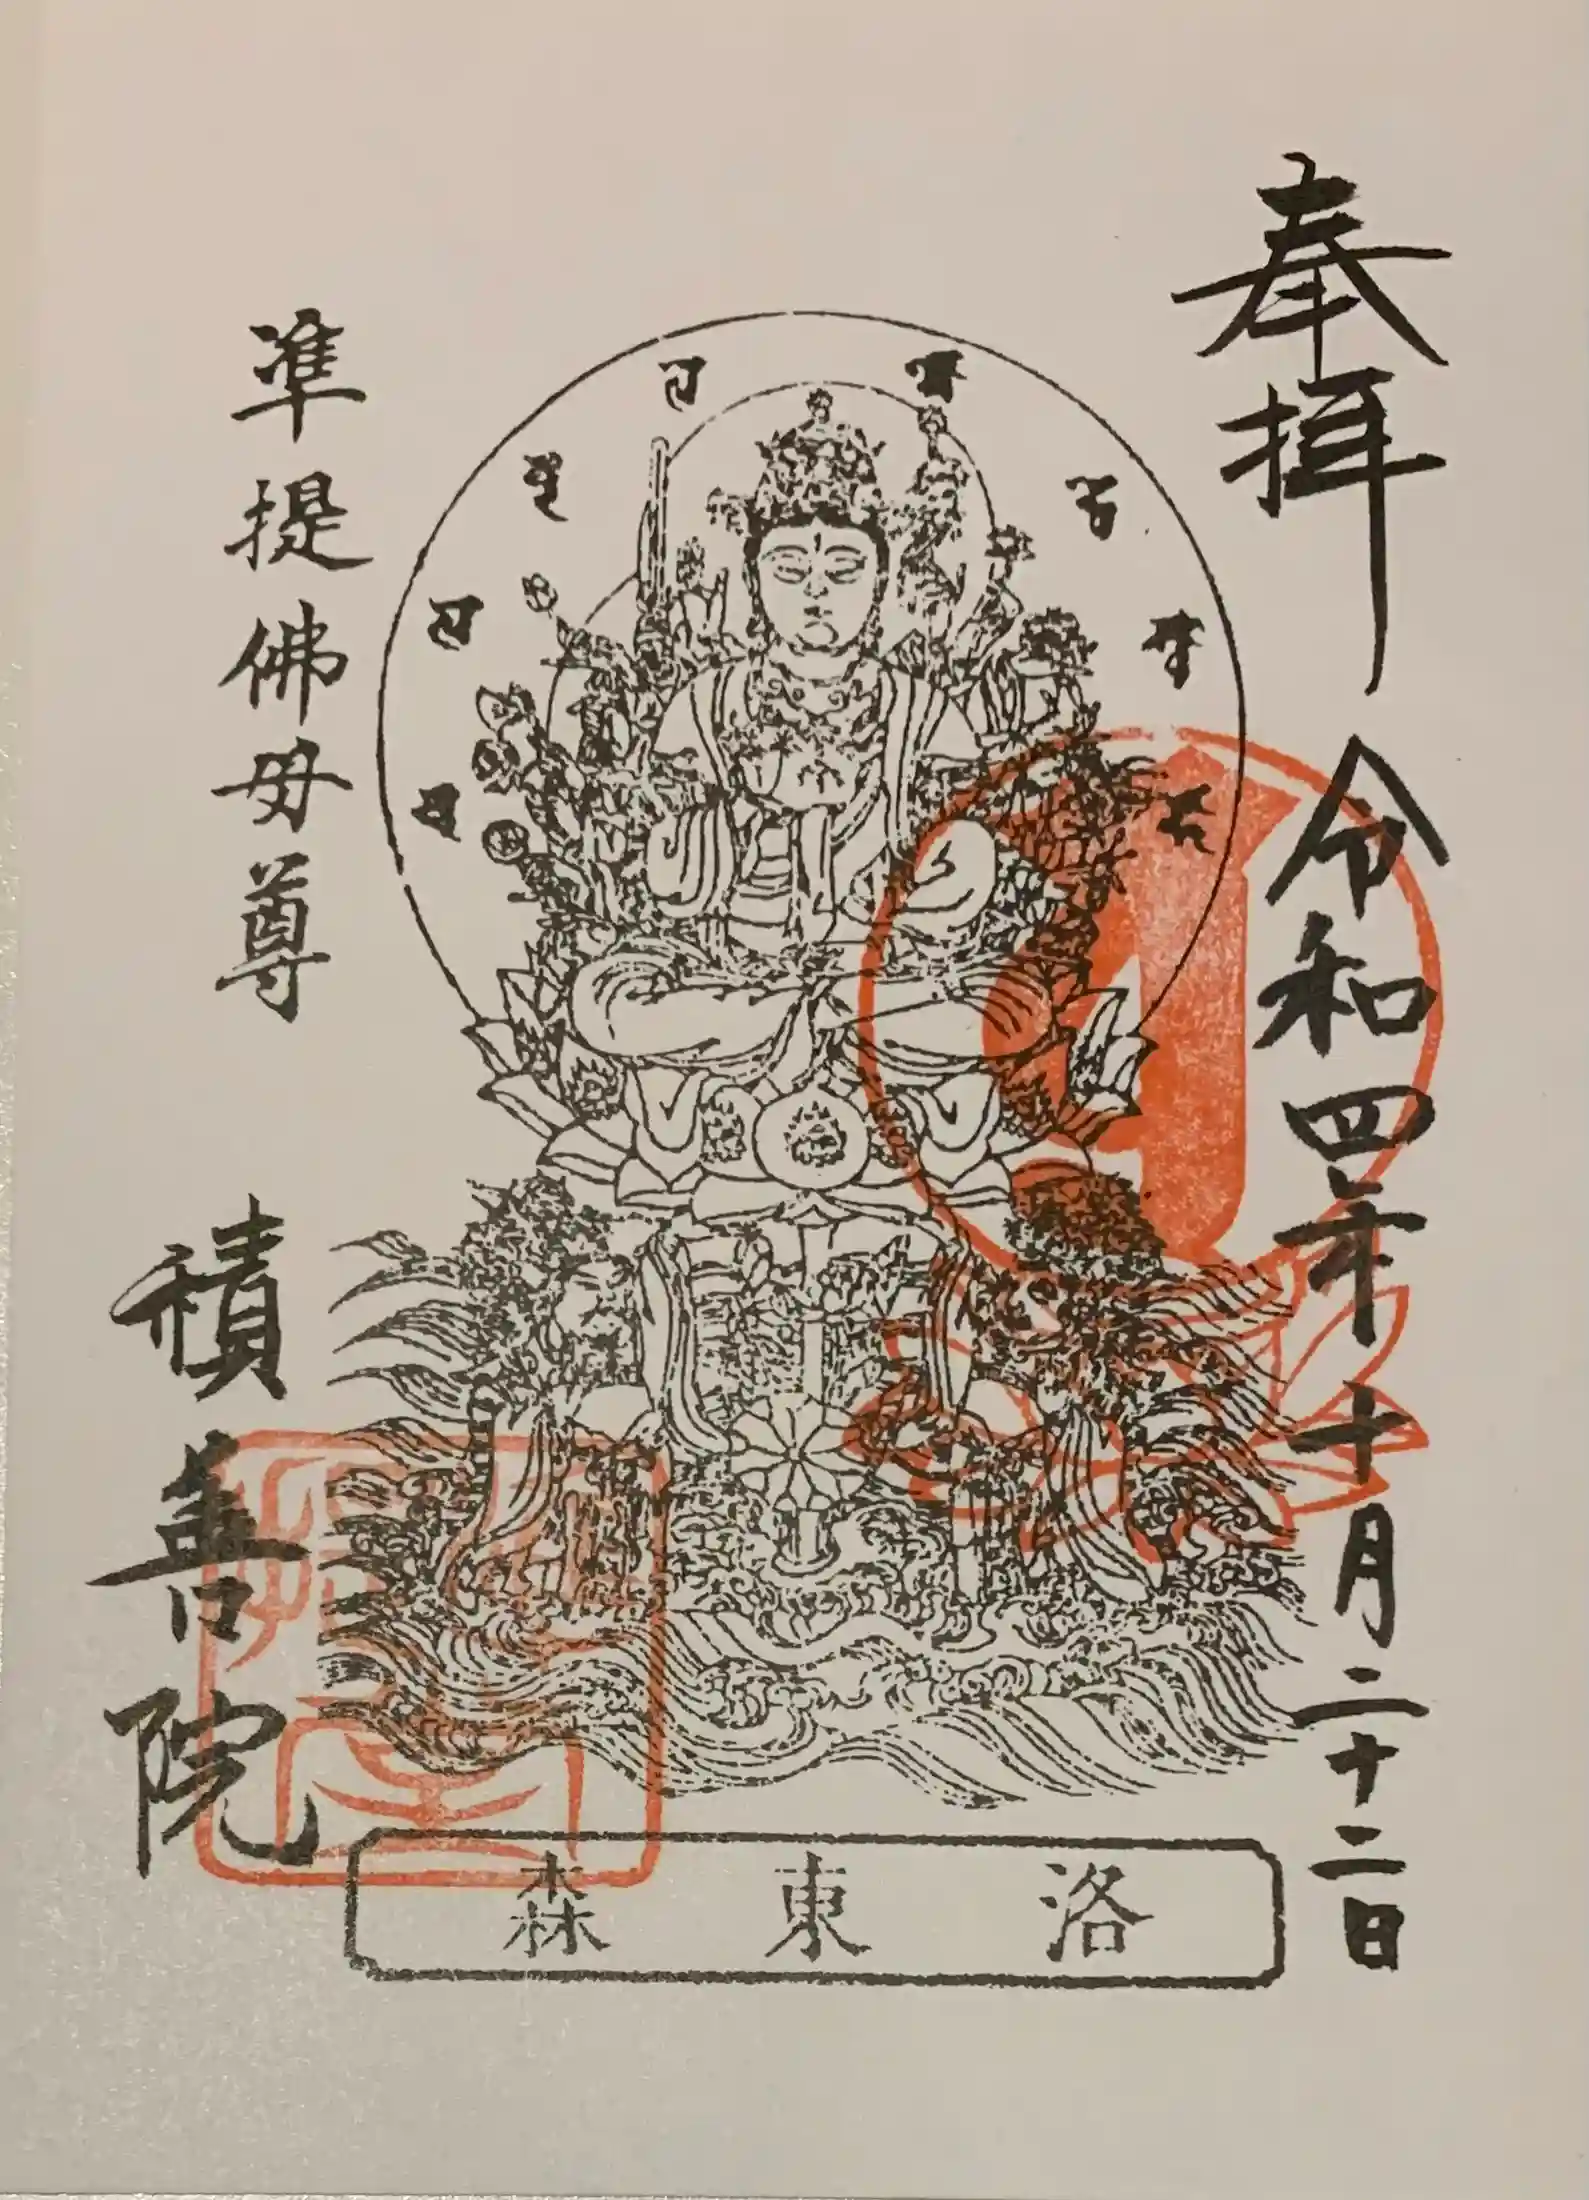 奉拝
令和四年十月二十二日
準提佛母尊
積善院
洛東森